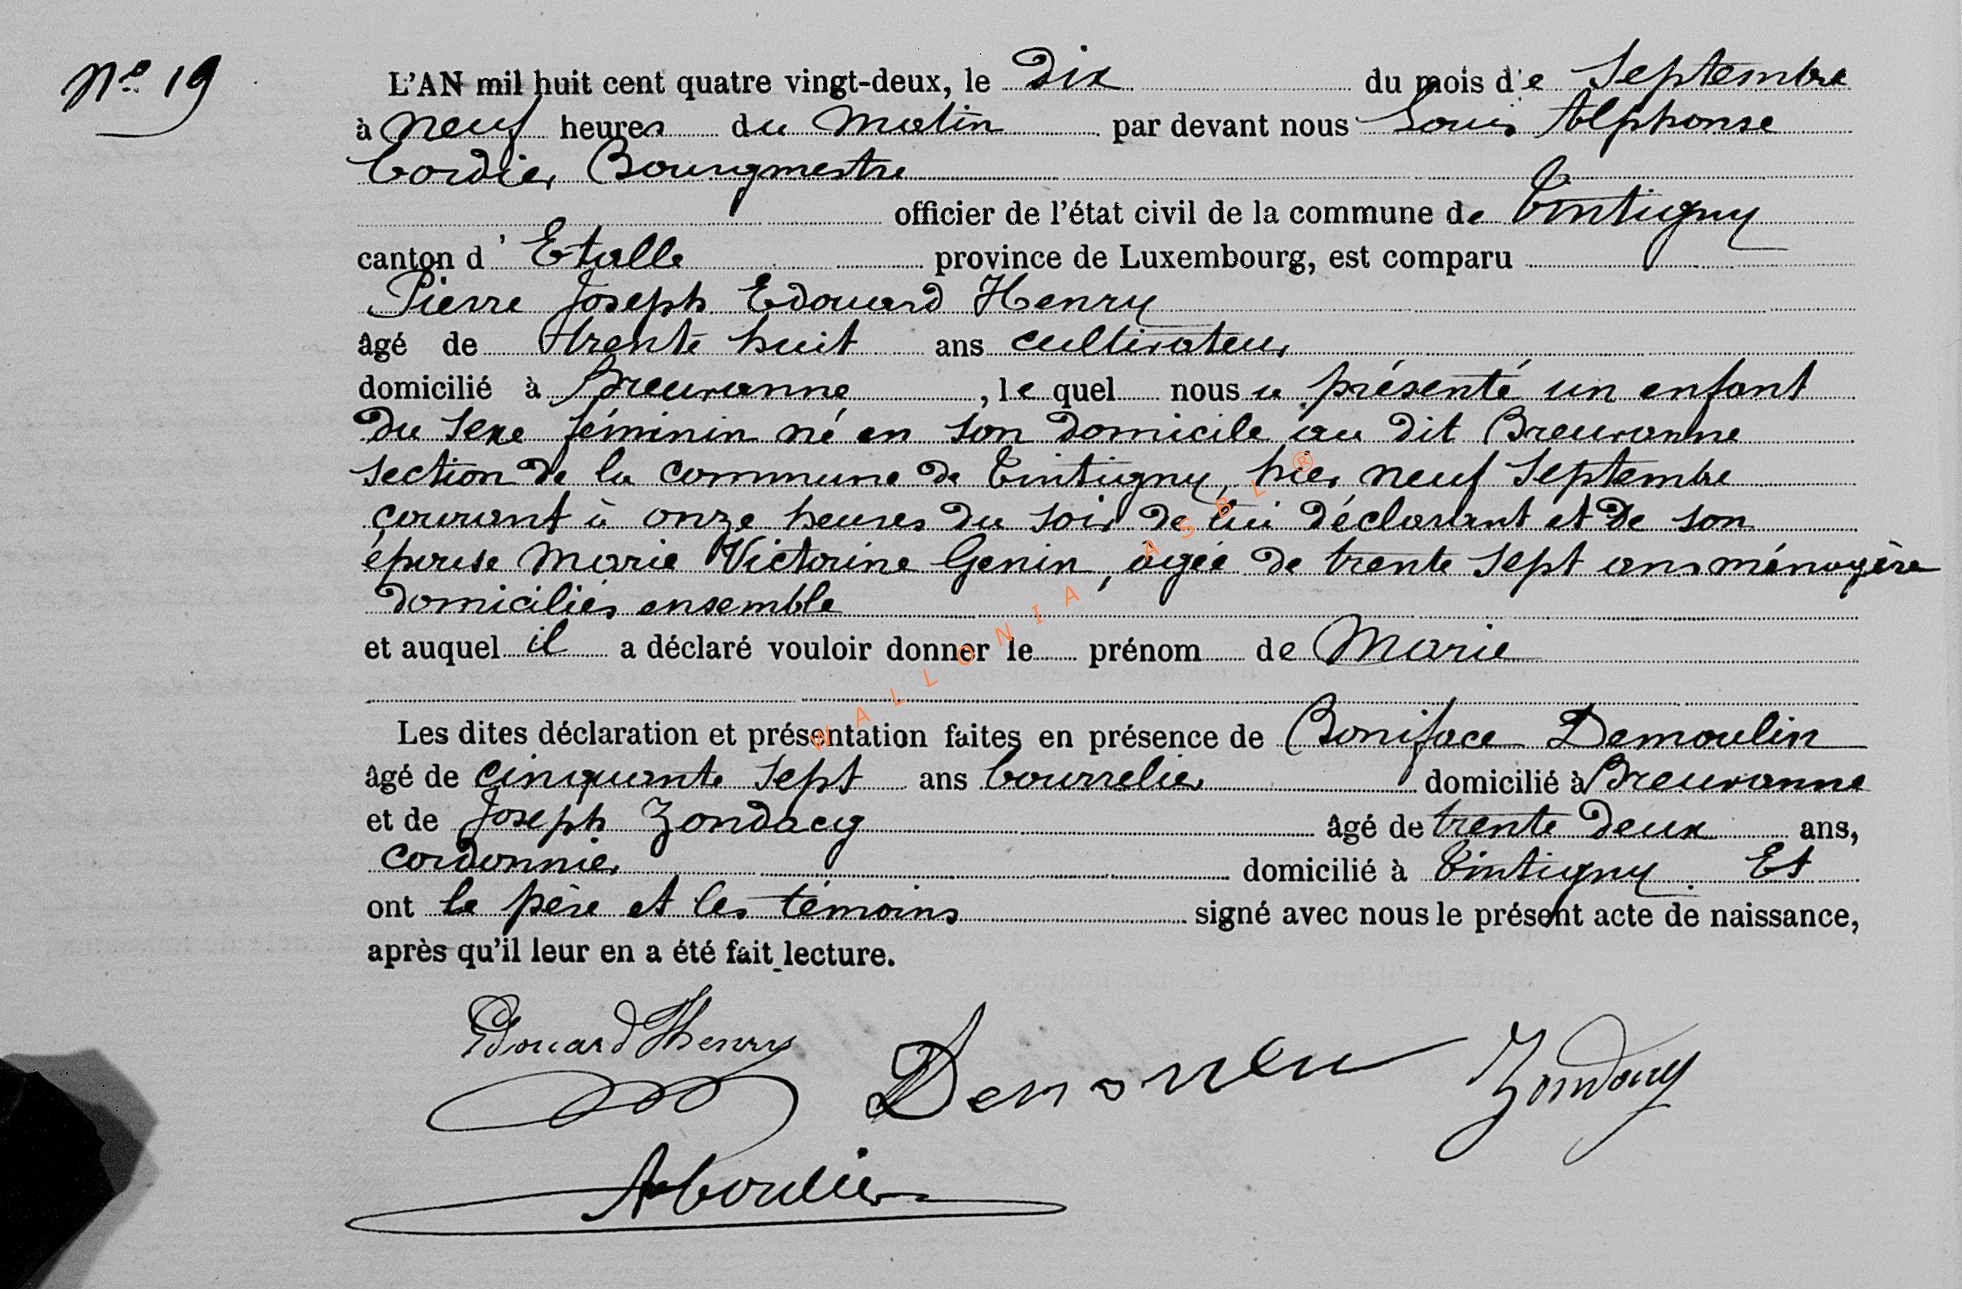 No 19
L'AN mil huit cent quatre vingt-deux, le Dix du mois de Septembre
à neuf heures du Matin par devant nous Louis Alphonse
Cordier Bourgmestre
officier de l'état civil de la commune de Tintigny
canton d'Etalle province de Luxembourg, est comparu
Pierre Joseph Edouard Henry
âgé de trente huit ans cultivateur
domicilié à Breuvanne, lequel nous a présenté un enfant
du sexe féminin né en son domicile au dit Breuvanne
section de la commune de Tintigny, hier neuf Septembre
courant à onze heures du soir de lui déclarant et de son
épouse Marie Victorine Genin, agée de trente sept ans ménagère
domiciliés ensemble
et auquel il a déclaré vouloir donner le prénom de Marie
Les dites déclaration et présentation faites en présence de Boniface Demoulin
âgé de cinquante sept ans bourrelier domicilié à Breuvanne
et de Joseph Zondacq âgé de trente deux ans,
cordonnier domicilié à Tintigny. Et
ont le père et les témoins signé avec nous le présent acte de naissance,
après qu'il leur en a été fait lecture.
Edouard Henry Demoulin Zondacq
A Cordier
WALLONIA ASBL ®